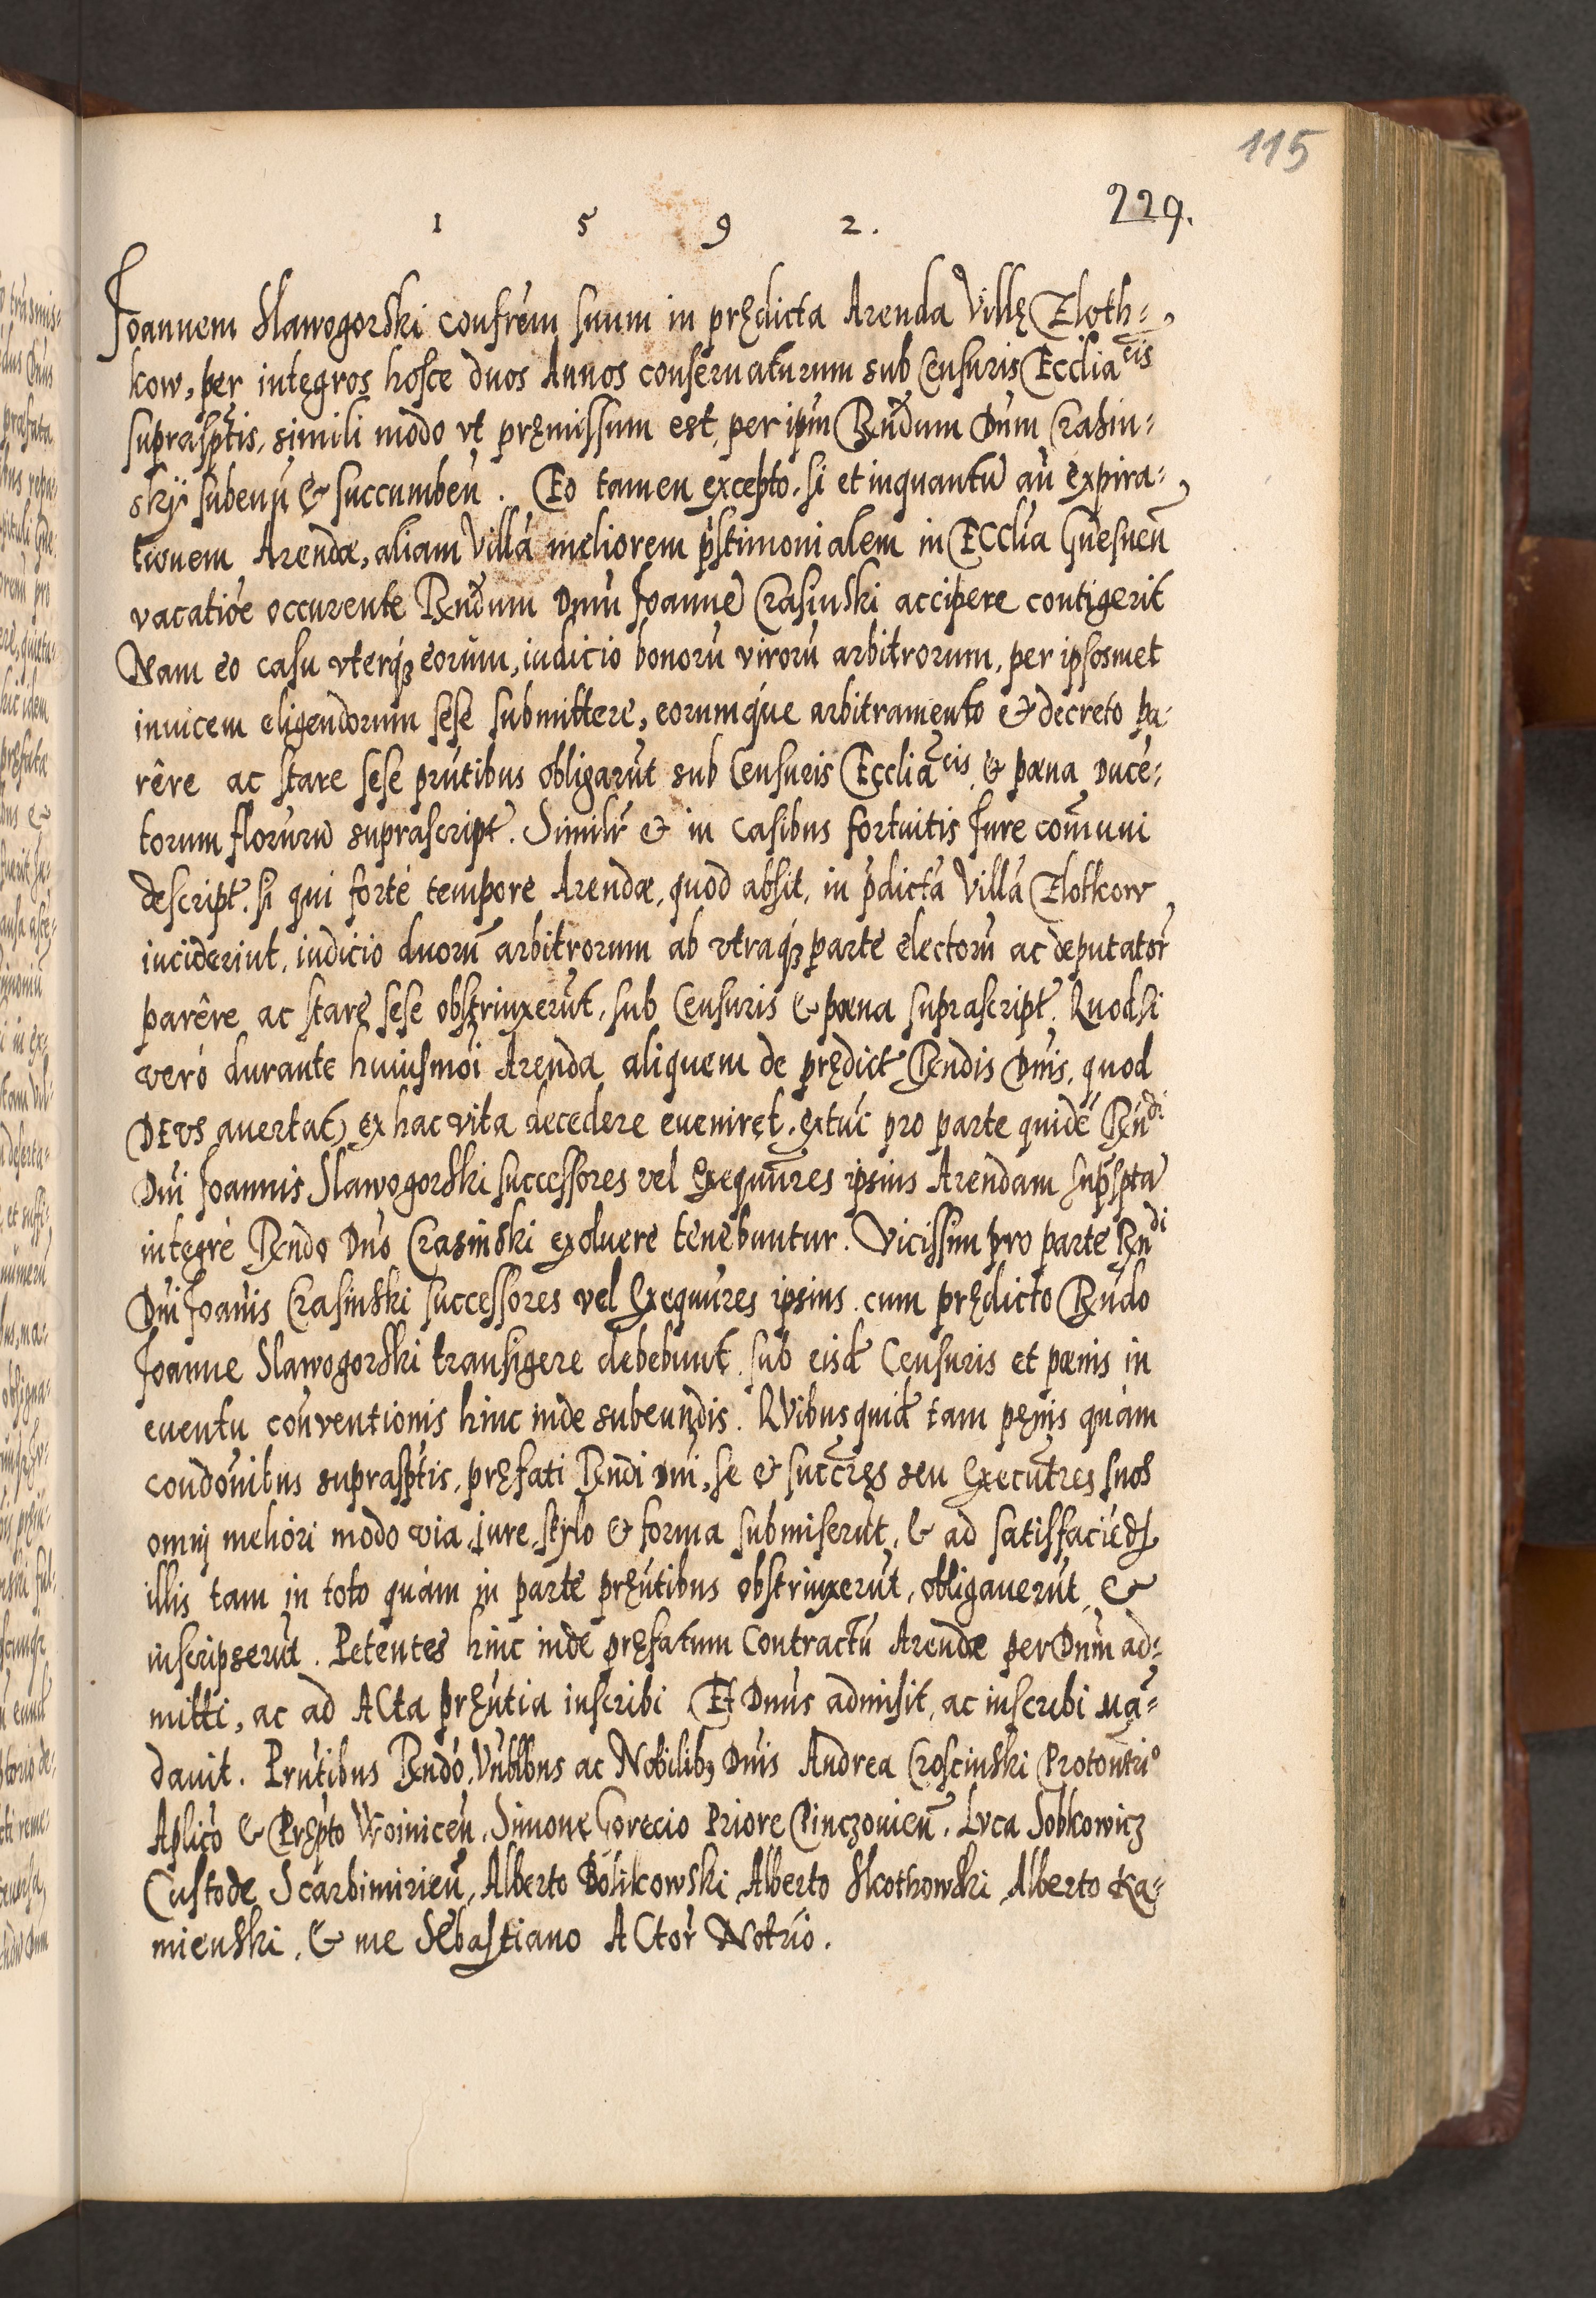 115
229.
1 5 9 2.
Joannem Slawogorski confrem̃ suum in prędicta Arenda Villę Zloth⸗
kow, per integros hosce duos Annos conseruaturum sub Censuris Ecclia͠cis
suprasptis, simili modo vt pręmissum est, per ipm̃ Rn̄dum Dnm̃ Crasin⸗
skÿ subeun̄ & succumben̄. Eo tamen excepto, si et inquantũ an̄ expira⸗
tionem Arendæ, aliam Villã meliorem p̃stimonialem in Ecclia Gnesnen̄
vacatiõe occurente Rn̄dum Dnm̃ Joannẽ Crasinski accipere contigerit
Nam eo casu vterqꝫ eorum, iudicio bonorũ virorũ arbitrorum, per ipsosmet
inuicem eligendorum sese submittere, eorumque arbitramento & decreto pa⸗
rêre ac stare sese prñtibus obligarũt sub Censuris Ecclia͠cis, & pæna Ducẽ⸗
torum florũrũ suprascript. Similr̃ & in casibus fortuitis Jure com̃uni
descript. si qui forté tempore Arendæ, quod absit, in p̃dicta Villa Zlotkow
inciderint, iudicio duorũ arbitrorum ab vtraqꝫ parte electorũ ac deputator̃
parêre ac stare sese obstrinxerũt, sub Censuris & pæna suprascript. Quodsi
veró durante huiusmõi Arenda aliquem de prędict Rendis Dnis, quod
DEVS auertat, ex hac vita decedere eueniret, extũc pro parte quidẽ Rn̄di
Dni Joannis Slawogorski successores vel Exequũres ipsius Arendam supr̃spta
integrè Rn̄do Dnõ Crasinski exoluere tenebuntur. Vicissim pro parte Rn̄di
Dni Joanis Crasinski successores vel Exequũres ipsius cum prędicto Rn̄do
Joanne Slawogorski transigere debebunt, sub eisd Censuris et pænis in
euentu conventionis hinc inde subeundis. QVibus quid tam pęnis quàm
condõnibus suprasptis, pręfati Rn̄di Dni, se & succres̃ seu Executres̃ suos
omnj meliori modo via, jure, stylo & forma submiserũt, & ad satisfaciẽd
illis tam in toto quàm in parte pręntibus obstrinxerũt, obligauerũt &
inscripserũt. Petentes hinc inde pręfatum Contractũ Arendæ per Dnm̃ ad⸗
mitti, ac ad Acta pręntia inscribi Et Dnus admisit, ac inscribi mã⸗
dauit. Prñtibus Rn̄dõ, Vn̄blbus ac Nobilibꝫ Dnis Andrea Croscinski Protontrio
Aplico & Pręp̃to Woinicen̄, Simone Gorecio Priore Pinczouien̄, Lvca Sobkowicz
Custode Scarbimirien̄, Alberto Bolikowski, Alberto Skothowski, Alberto Ka⸗
mienski, & me Sebastiano Actor̃ Notrio.